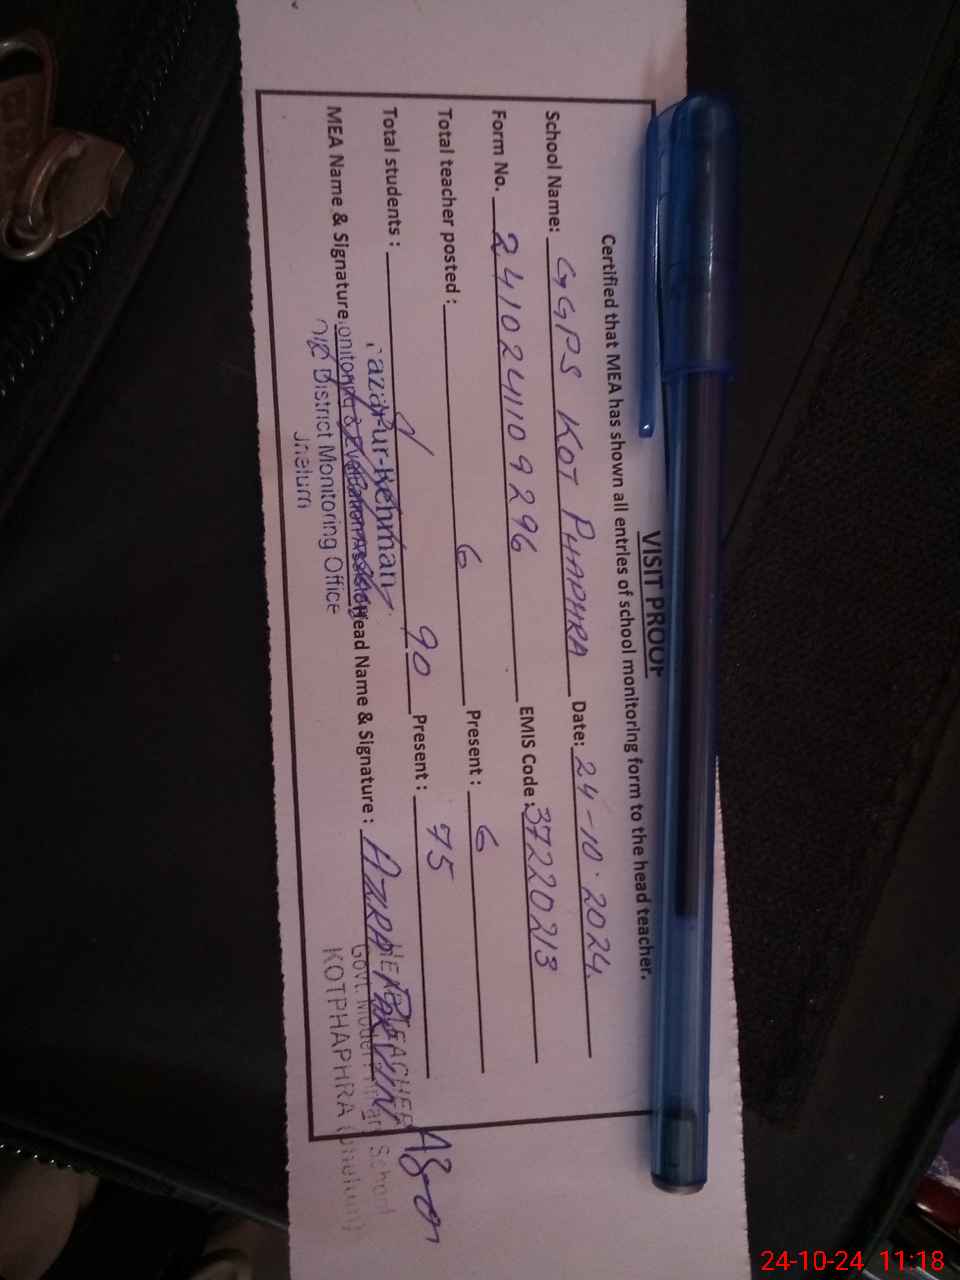 VISIT PROOF
Certified that MEA has shown all entries of school monitoring form to the head teacher.
School Name: GGPS KOT PHAPHRA Date: 24-10-2024
Form No. 241024110 9296 EMIS Code: 37220213
Total teacher posted : 6 Present : 6
Total students : 90 Present : 75
MEA Name & Signature Head Name & Signature : AZRA PARVIN
-ur-Rehman
onitoring & Evaluation Assistant
District Monitoring Office
Jhelum
HEAD TEACHER
Govt. Model Primary School
KOTPHAPHRA (Jhelum)
24-10-24 11:18